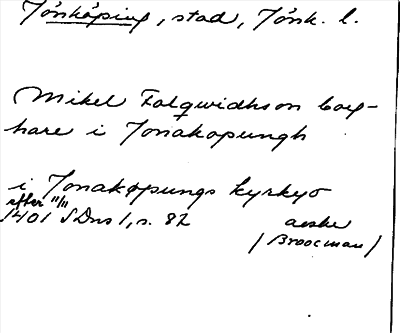 Jönköping, stad, Jönk. l.
Mikel Falqwidhson boyk-
hare i Jonakopungh
i Jonakøpungs kyrkyo
efter 11/11
1401 SDns 1, s. 82 avskr
(Broocman)